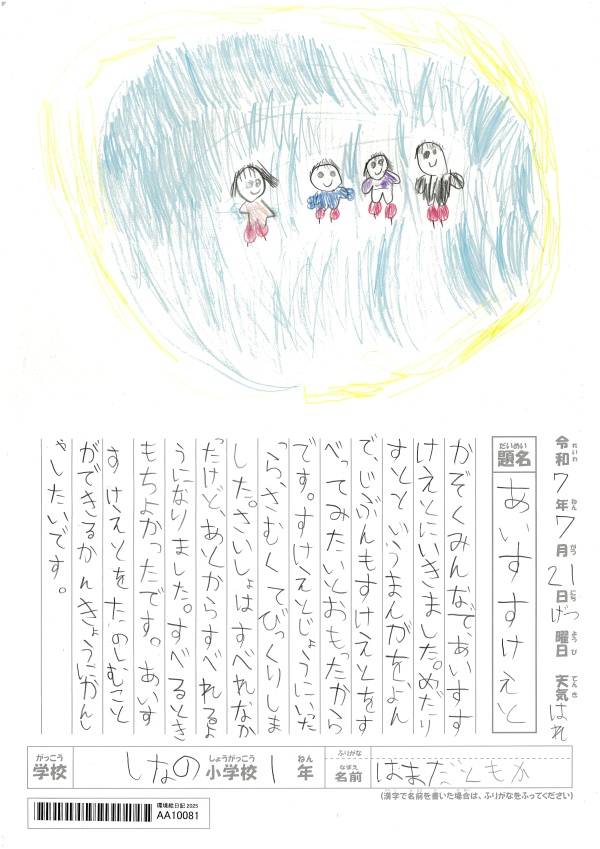 令和7年7月21日げつ曜日 天気はれ
れいわ ねん がつ にち ようび てんき
だいめい
題名 あいすすけえと
かぞくみんなで、あいすす
けえとにいきました。めだり
すとと いうまんがを、よん
で、じぶんもすけえとをす
べってみたいとおもったから
です。すけえとじょうにいった
っら、さむくてびっくりしま
した。さいしょはすべれなか
ったけど、あとからすべれるよ
うになりました。すべるとき
もちよかったです。あいす
すけえとをたのしむこと
ができるかんきょうにかんし
ゃしたいです。
がっこう しょうがっこう ねん ふりがな なまえ
学校 しなの小学校1年 名前 はまだともか
(漢字で名前を書いた場合は、ふりがなをふってください)
環境絵日記 2025
AA10081